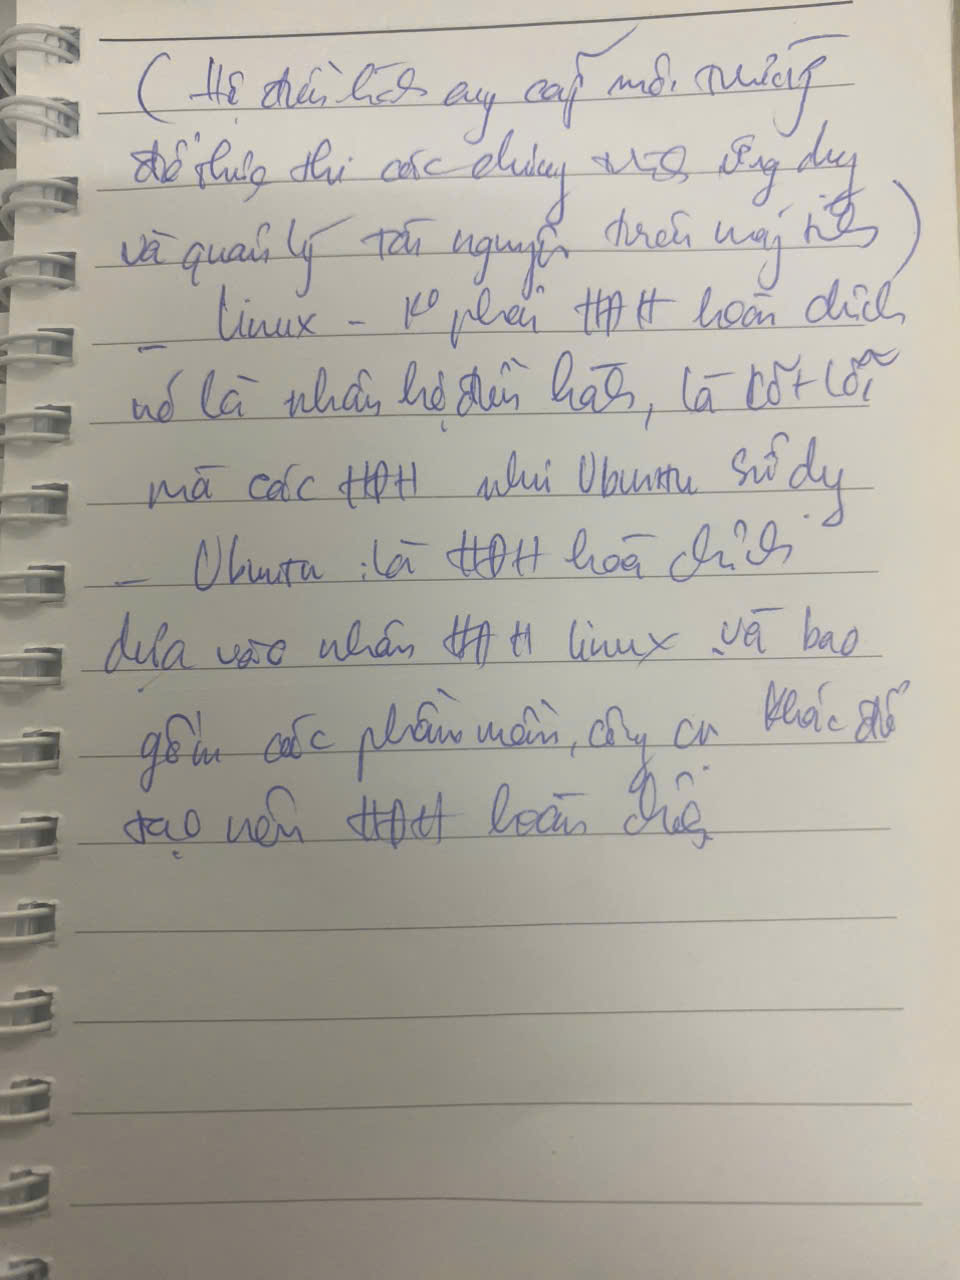 ( Hệ điều hành cung cấp môi trường
để thực thi các chương trình ứng dụng
và quản lý tài nguyên trên máy tính )
- Linux - K° phải HĐH hoàn chỉnh
nó là nhân hệ điều hành, là cốt lõi
mà các HĐH như Ubuntu sử dụng
- Ubuntu : là HĐH hoàn chỉnh
dựa vào nhân HĐH Linux và bao
gồm các phần mềm, công cụ khác để
tạo nên HĐH hoàn